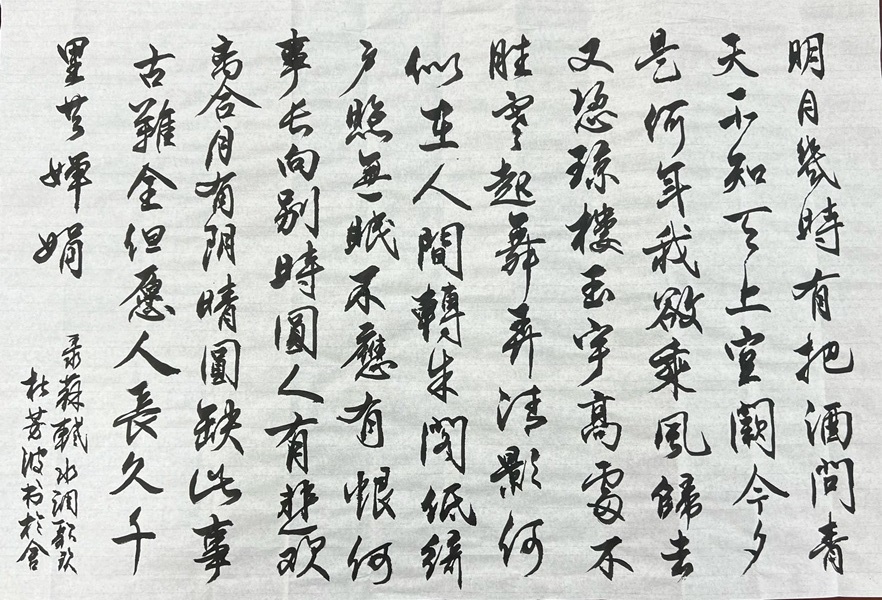 明月幾時有把酒問青
天不知天上宮闕今夕
是何年我欲乘風歸去
又恐瓊樓玉宇高處不
勝寒起舞弄清影何
似在人間轉朱閣低綺
户照無眠不應有恨何
事长向别時圓人有悲欢
离合月有阴晴圓缺此事
古難全但愿人長久千
里共嬋娟
录蘇軾水调歌頭
杜芳波书於